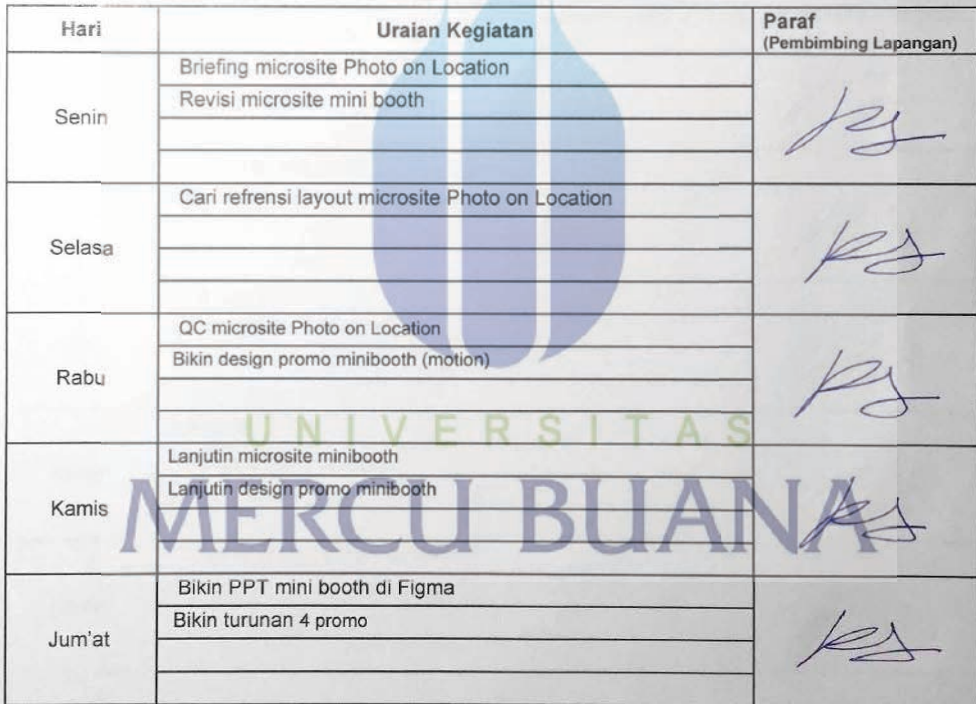 Hari Uraian Kegiatan Paraf
(Pembimbing Lapangan)
Senin
Briefing microsite Photo on Location
Revisi microsite mini booth
Selasa
Cari refrensi layout microsite Photo on Location
Rabu
QC microsite Photo on Location
Bikin design promo minibooth (motion)
UNIVERSITAS
Kamis
Lanjutin microsite minibooth
Lanjutin design promo minibooth
MERCU BUANA
Jum'at
Bikin PPT mini booth di Figma
Bikin turunan 4 promo